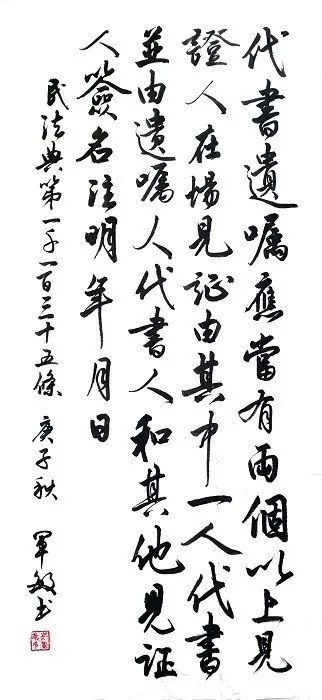 代書遺囑應當有兩個以上見
證人在場見証由其中一人代書
並由遺囑人代書人和其他見証
人簽名注明年月日
民法典第一千一百三十五條 庚子秋 軍敏书